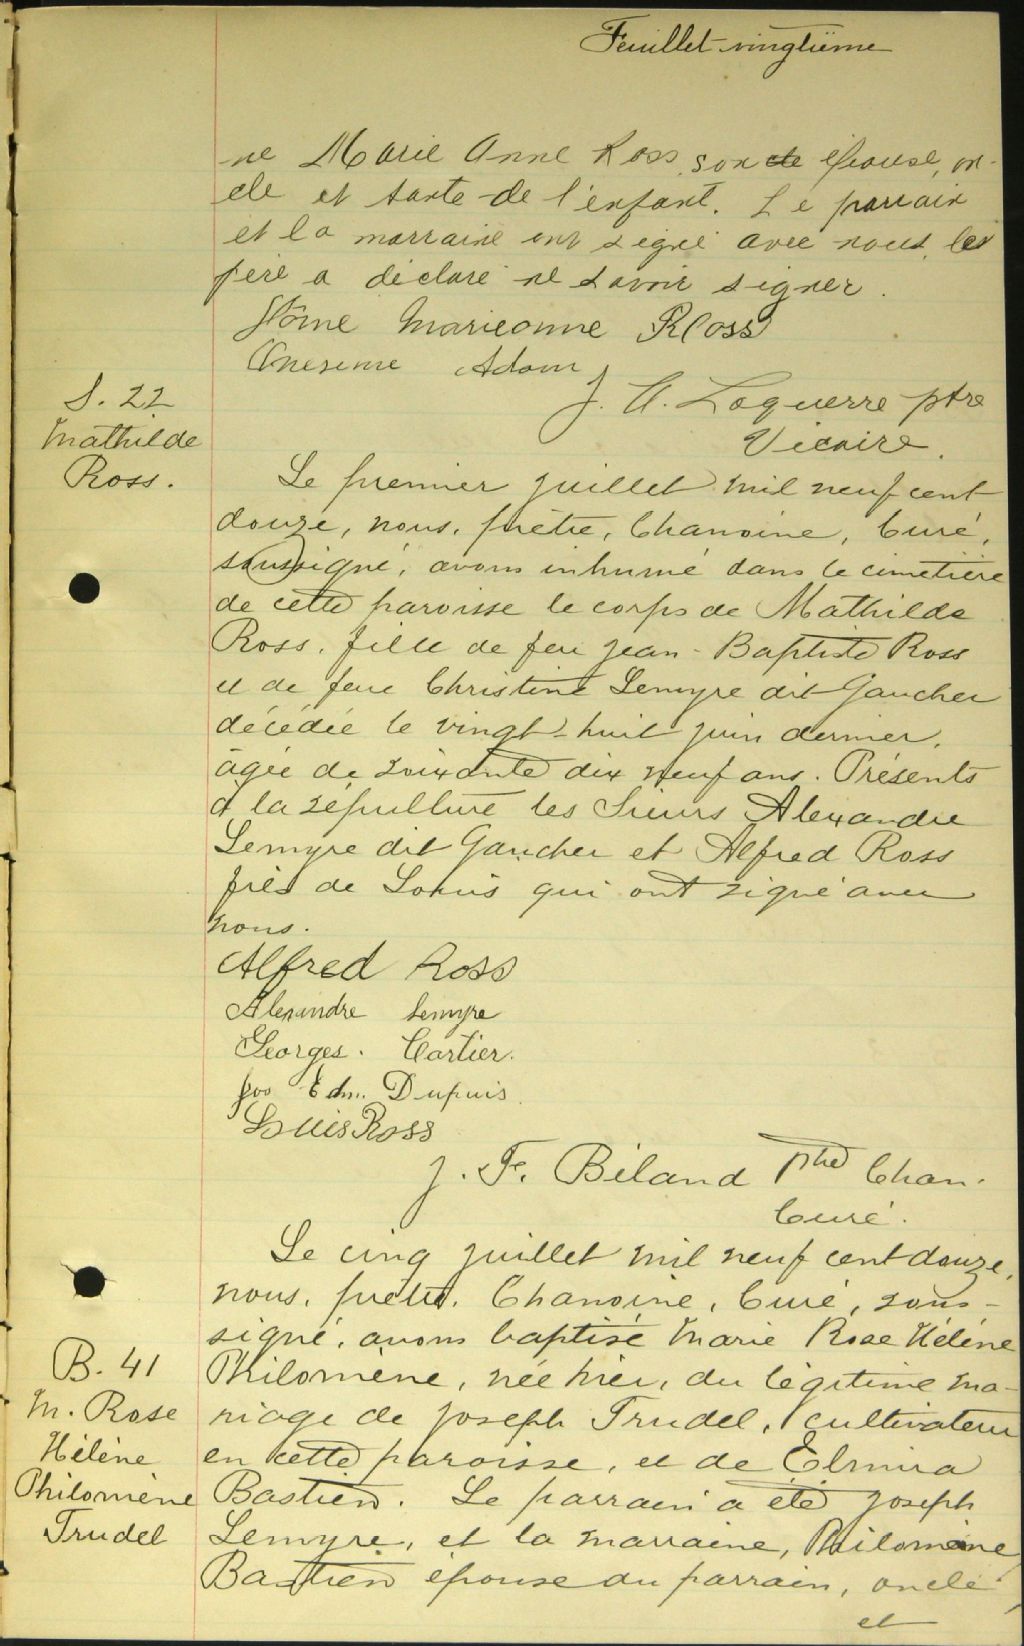 Feuillet vingtième
-ne Marie Anne Ross son épouse, on-
cle et tante de l'enfant. Le parrain
et la marraine ont signé avec nous, le
père a déclaré ne savoir signer.
Dme Marieanne Ross
Onesime Adam
J. A. Laguerre ptre
Vicaire.
S. 22
Mathilde
Ross.
Le premier juillet mil neuf cent
douze, nous, prêtre, Chanoine, Curé,
soussigné, avons inhumé dans le cimetière
de cette paroisse le corps de Mathilde
Ross, fille de feu Jean-Baptiste Ross
et de feue Christine Lemyre dit Gaucher
décédée le vingt-huit juin dernier,
âgée de soixante dix neuf ans. Présents
à la sépulture les Sieurs Alexandre
Lemyre dit Gaucher et Alfred Ross
fils de Louis qui ont signé avec
nous.
Alfred Ross
Alexandre Lemyre
Georges. Cartier.
Jos Edm. Dupuis
Louis Ross
J. F. Béland Ptre Chan.
Curé.
Le cinq juillet mil neuf cent douze,
nous, prêtre, Chanoine, Curé, sous-
signé, avons baptisé Marie Rose Hélène
Philomène, née hier, du légitime ma-
riage de Joseph Trudel, cultivateur
en cette paroisse, et de Elmira
Bastien. Le parrain a été Joseph
Lemyre, et la marraine, Philomène
Bastien épouse du parrain, oncle
et
B. 41
M. Rose
Hélène
Philomène
Trudel